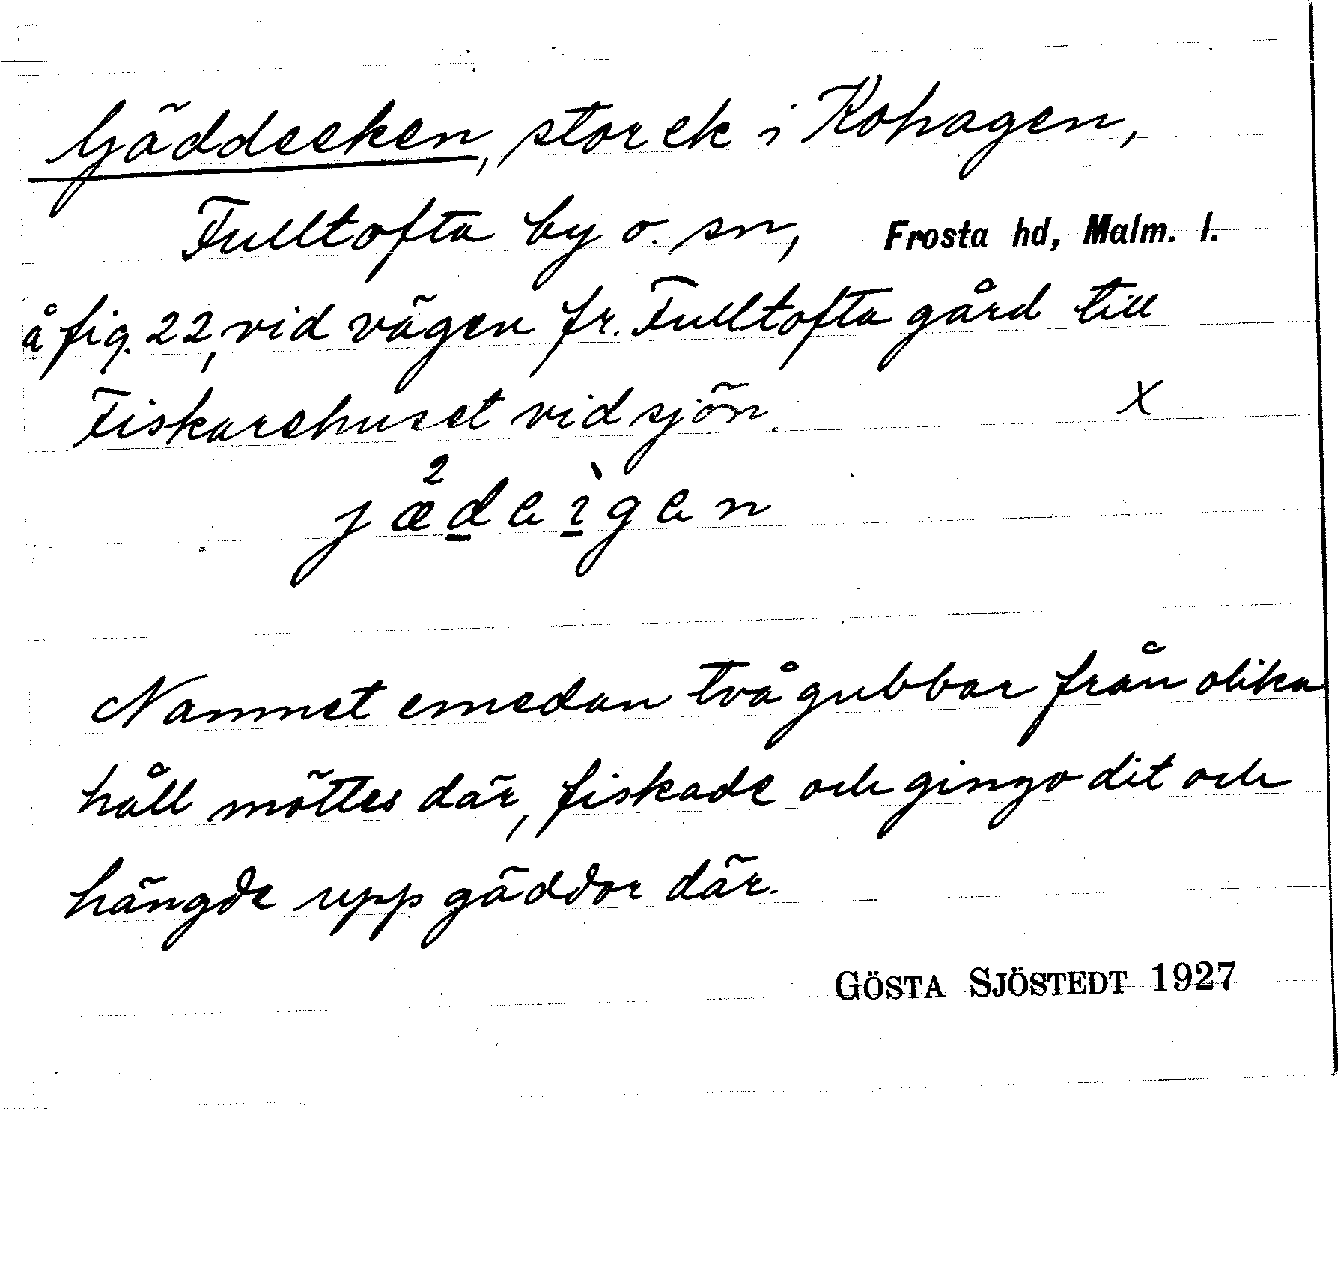 Gäddeeken, stor ek i Kohagen,
Fulltofta by o. sn, Frosta hd, Malm. l.
å fig. 22, vid vägen fr. Fulltofta gård till
Fiskarehuset vid sjön. x
jæ̊²deìgen
Namnet emedan två gubbar från olika
håll möttes där, fiskade och gingo dit och
hängde upp gäddor där.
GÖSTA SJÖSTEDT 1927